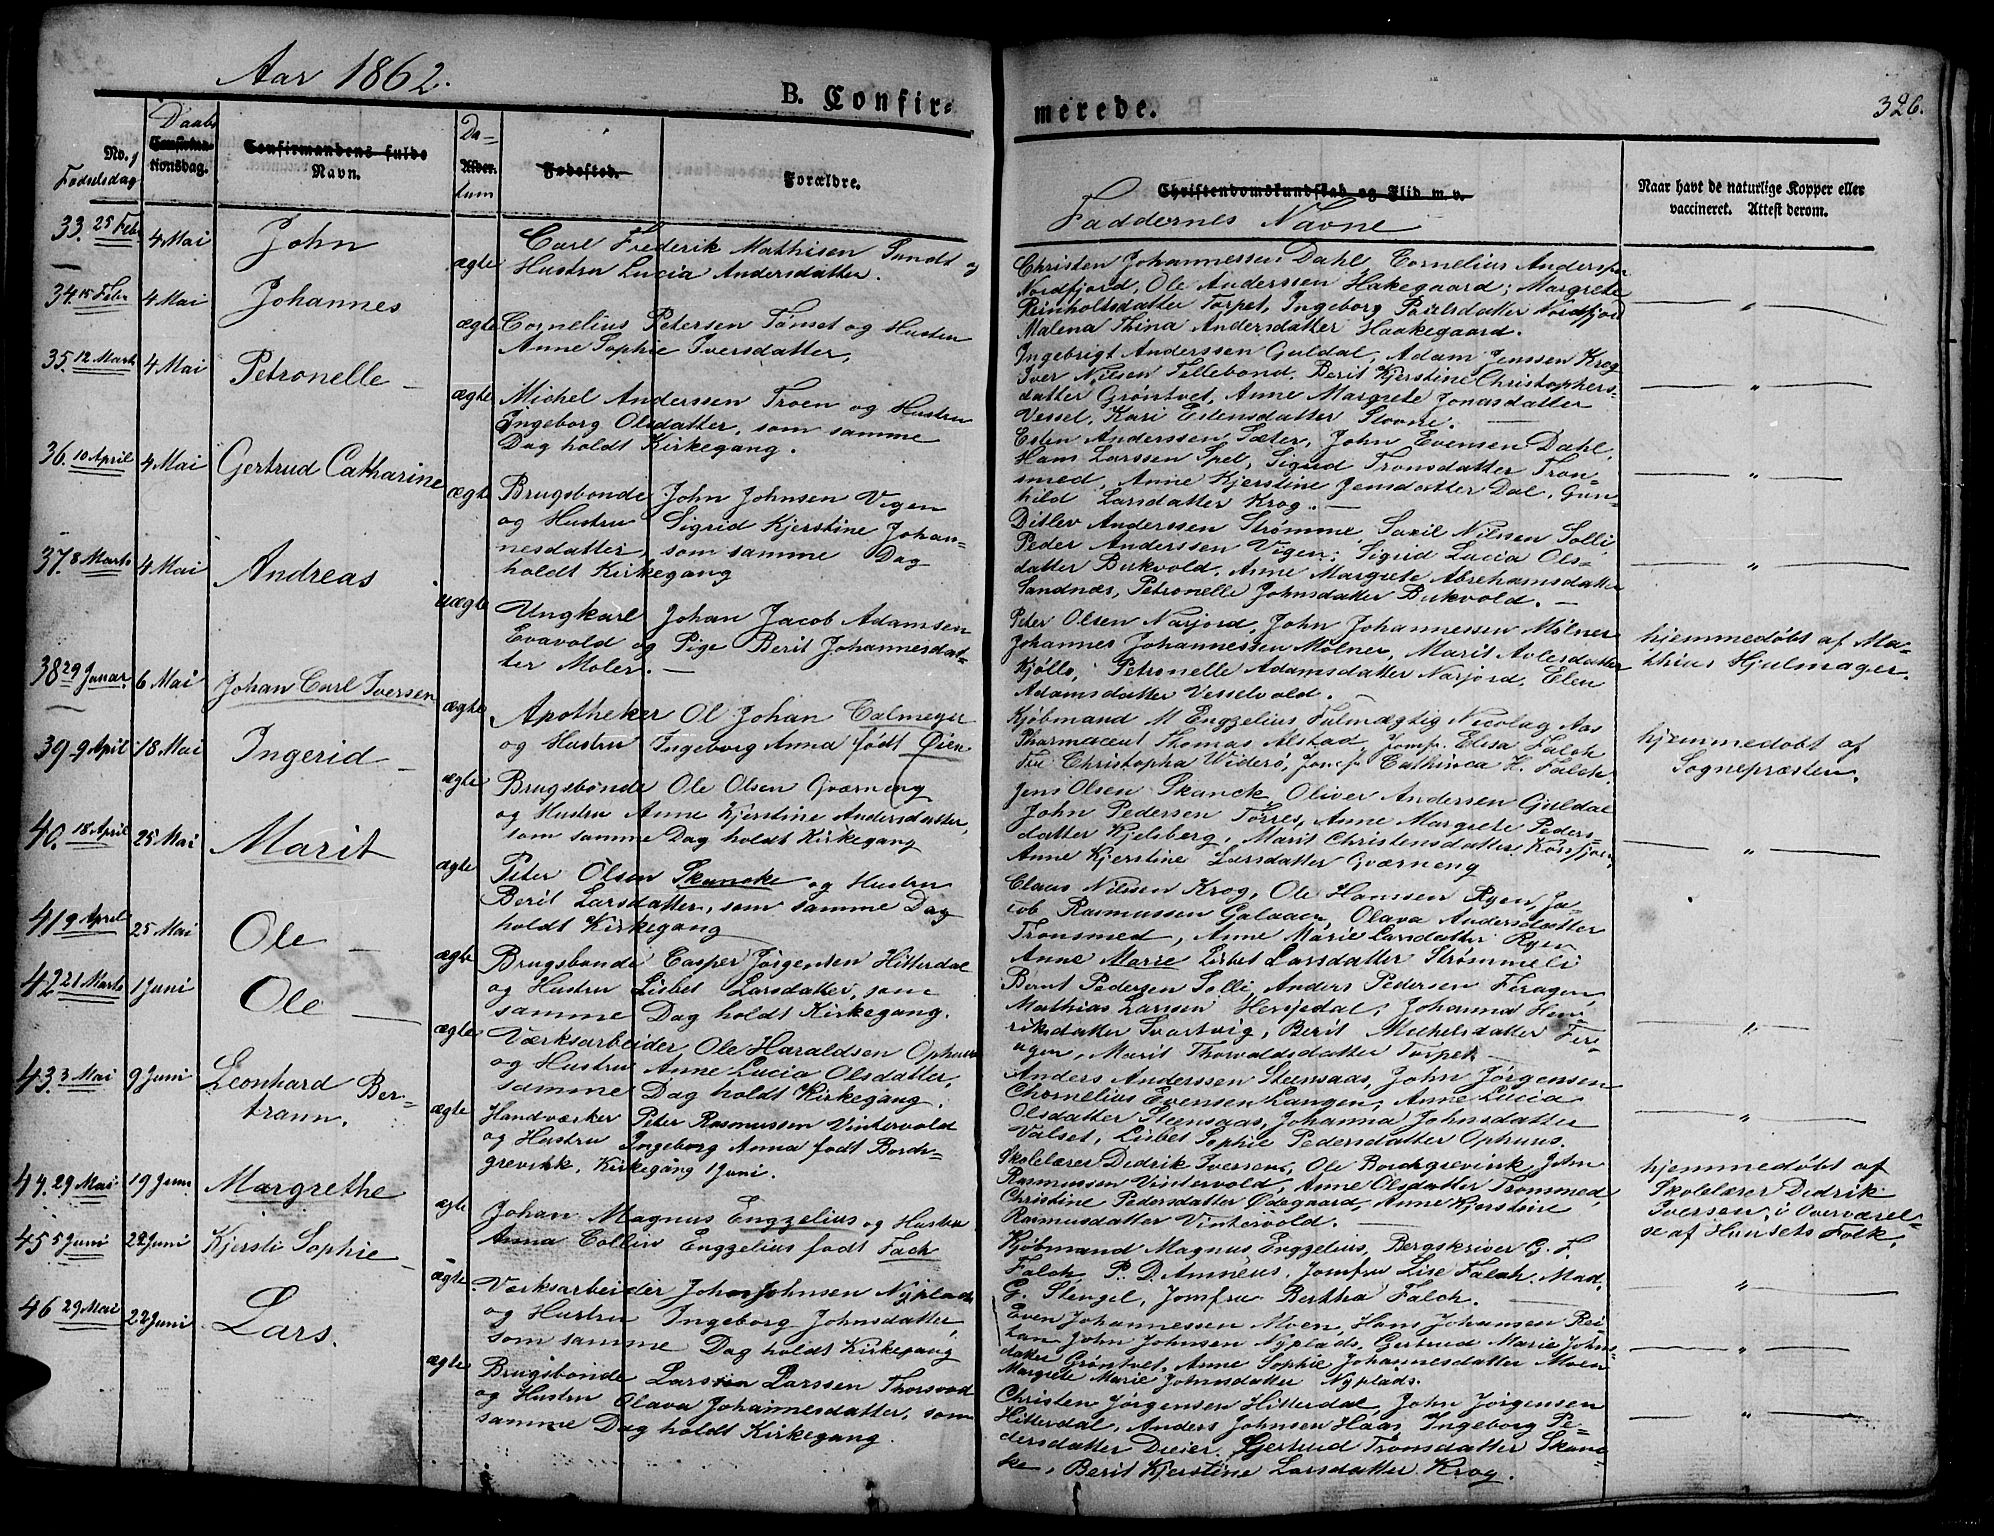 Aar 1862.
B. Confir=
Daabs
Confirma-
tionsdag.
No. og
Fødselsdag
Confirmandens fulde
Navn.
Da=
Alder.
tum
Fødested.
Forældre.
33. 25 Feb.
4 Mai
John
ægte
Carl Frederik Mathisen Sundt og
Hustru Lucia Andersdatter.
34. 15 Febr
4 Mai
Johannes
ægte
Cornelius Petersen Tønset og Hustru
Anne Sophie Iversdatter,
35. 12 Marts
4 Mai
Petronelle –
ægte
Michel Anderssen Troen og Hustru
Ingeborg Olsdatter, som samme
Dag holdt Kirkegang.
36. 10 April
4 Mai
Gertrud Catharine
ægte
Brugsbonde John Johnsen Vigen
og Hustru Sigrid Kjerstine Johan-
nesdatter, som samme Dag
holdt Kirkegang
37. 8 Marts
4 Mai
Andreas
uægte
Ungkarl Johan Jacob Adamsen
Evavold og Pige Berit Johannesdat-
ter Moler. —
38. 29 Januar.
6 Mai
Johan Carl Iversen
ægte
Apotheker Ol Johan Calmeyer
og Hustru Ingeborg Anna født Øien
39. 9 April
18 Mai
Ingerid –
ægte
Brugsbonde Ole Olsen Gværneng
og Hustru Anne Kjerstine Andersdatter,
som samme Dag holdt Kirkegang
40. 18 April
25 Mai
Marit
ægte
Peter Olsen Skancke og Hustru
Berit Larsdatter, som samme Dag
holdt Kirkegang
41. 9 April
25 Mai
Ole –
ægte
Brugsbonde Casper Jørgensen Hitterdal
og Hustru Lisbet Larsdatter, som
samme Dag holdt Kirkegang.
42. 21 Marts
1 Juni
Ole —
ægte
Værksarbeider Ole Haraldsen Ophuus
og Hustru Anne Lucia Olsdatter,
samme Dag holdt Kirkegang.
43. 3 Mai
9 Juni
Leonhard Ber-
tramn.
ægte
Handværker Peter Rasmussen Vintervold
og Hustru Ingeborg Anna født Bordv-
grevikk, Kirkegang 1 Juni.
44. 29 Mai
19 Juni
Margrethe
ægte
Johan Magnus Engzelius og Hustru
Anna Collin Engzelius født Fach
45. 5 Juni
22 Juni
Kjersti Sophie –
ægte
Værksarbeider John Johnsen Nyplads
og Hustru Ingeborg Johnsdatter,
som samme Dag holdt Kirkegang
46. 29 Mai
22 Juni
Lars.
ægte
Brugsbonde Lars Larssen Thorsvod
og Hustru Olava Johannesdatter, som
samme Dag holdt Kirkegang.
merede.
326.
Christendomskundskab og Flid m. v.
Faddernes Navne
Naar havt de naturlige Kopper eller
vaccineret. Attest derom.
Christen Johannessen Dahl, Cornelius Anderssen
Nordfjord, Ole Anderssen Hakegaard; Margrete
Reinholtsdatter Torpet, Ingeborg Poulsdatter Nordfjord
Malena Thina Andersdatter Haakegaard.
Ingebrigt Anderssen Guldal, Adam Jenssen Krog
Iver Nilsen Tellebond, Berit Kjerstine Christophers-
datter Grøntvet, Anne Margrete Jonasdatter
Vessel, Kari Estensdatter Stovne. —
Esten Anderssen Sæter, John Evensen Dahl,
Hans Larssen Spel, Sigrid Tronsdatter Tron-
smed, Anne Kjerstine Jensdatter Dal, Gun-
hild Larsdatter Krog. —
Ditlev Anderssen Strømme, Nilsen Solli
Peder Anderssen Vigen; Sigrid Lucia Ols-
datter Birkvold, Anne Margrete Abrehamsdatter
Sandnæs, Petronelle Johnsdatter Birkvold. —
Peter Olsen Narjord, John Johannessen Mølner
Johannes Johannessen Mølner, Marit datter
Kjølle, Petronelle Adamsdatter Narjord, Elen
Adamsdatter Vesselvold. —
hjemmedøbt af Ma-
thias Hjulmager.
Kjøbmand M Engzelius Fulmægtig Nicolay Aas
Pharmaceut Thomas Alstad, Jomfr. Elisa Falch
Christopha Viderø, Jomfr Cathinca H. Falch.
hjemmedøbt af
Sognepræsten.
Jens Olsen Skanck, Oliver Andersen Guldal
John Pedersen Torres, Anne Margrete Peders-
datter Kjelsberg, Marit Christensdatter
Anne Kjerstine Larsdatter Gværneng
Claus Nilssen Krog, Ole Hanssen Ryen, Ja-
cob Rasmussen Galaaen, Olava Andersdatter
Tronsmed, Anne Marie Larsdatter Ryen
Anne Marie Lisbet Larsdatter Strømmeli
Bernt Pedersen Solli, Anders Pedersen Feragen
Mathias Larsen Herjedal, Johanna Hen-
riksdatter Svartvig, Berit Michelsdatter Fer-
agen, Marit Thorvaldsdatter Torpet —
Anders Anderssen Steensaas, John Jørgensen
Chornelius Evensen Langen, Anne Lucia
Olsdatter Steensaas, Johanna Johnsdatter
Valset, Lisbet Sophie Pedersdatter Ophuus.
Skolelærer Didrik Iversen, Ole Bordhgrevink, John
Rasmussen Vintervold, Anne Olsdatter Tronsmed,
Christine Pedersdatter Ødegaard, Anne Kjerstine
Rasmusdatter Vintervold. —
hjemmedøbt af
Skolelærer Didrik
Iversen, i Overværel-
se af Huusets Folk.
Kjøbmand Magnus Engzelius, Bergskriver G. F.
Falch, P. D. Amnéus, Jomfru Lise Falch, Mad.
G. Stengel, Jomfru Bertha Falch.
Even Johannessen Moen, Hans Johansen Rei-
tan John Johnsen Nyplads, Gertrud Marie Johns-
datter Grøntvet, Anne Sophie Johannesdatter Moen
Margrete Marie Johnsdatter Nyplads.
Christen Jørgensen Hitterdal, John Jørgensen
Hitterdal, Anders Johnsen Haas, Ingeborg Pe-
dersdatter Dreier, Gjertrud Tronsdatter Skan-
ke, Berit Kjerstine Larsdatter Krog.